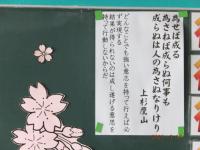 為せば成る
為さねば成らぬ何事も
成らぬは人の為さぬなりけり
上杉鷹山
どんなことでも強い意志を持って行えば必
ず実現する
結果が得られないのは成し遂げる意思を
持って行動しないからだ